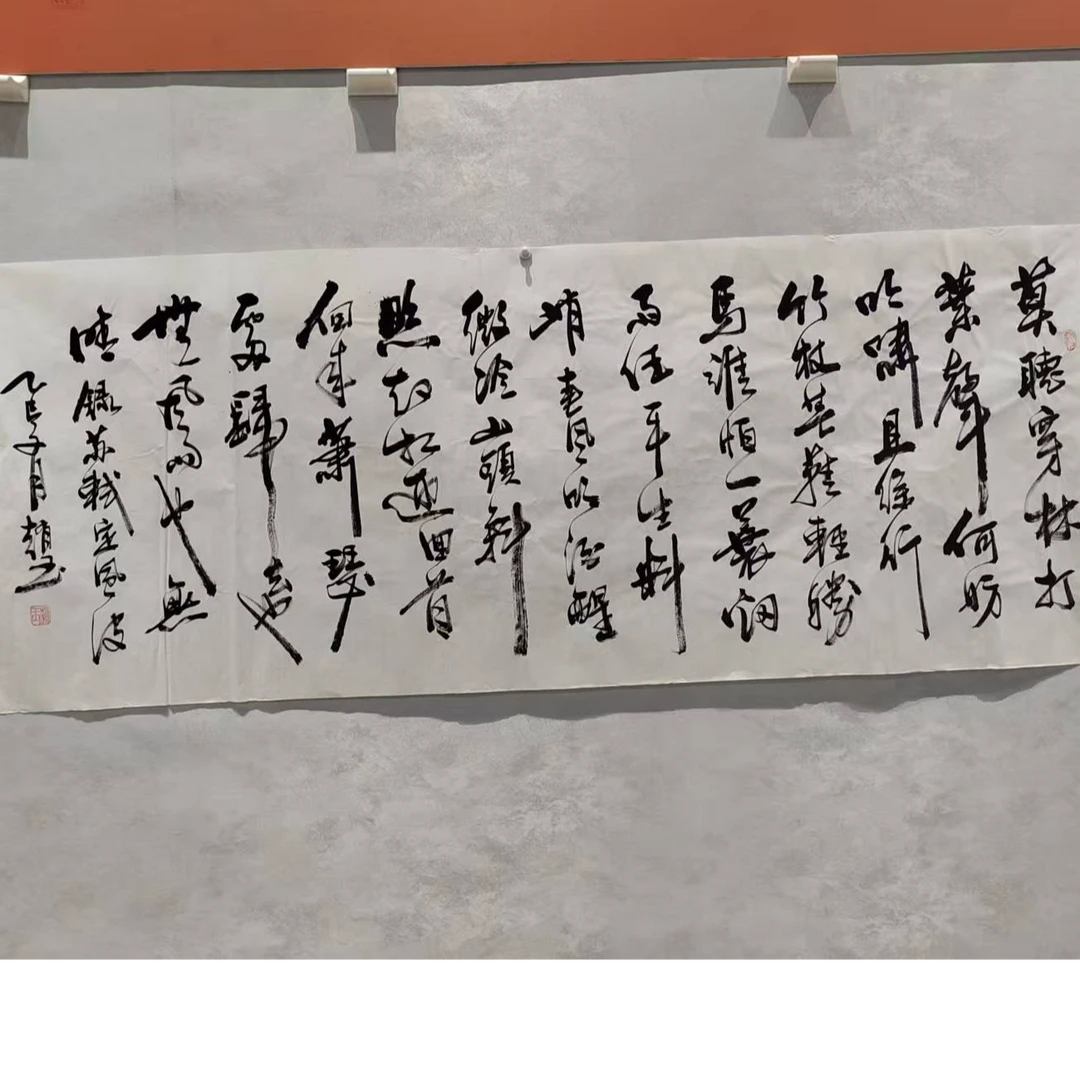 莫聽穿林打
葉聲何妨
吟嘯且徐行
竹杖芒鞋輕勝
馬誰怕一蓑烟
雨任平生料
峭春風吹酒醒
微冷山頭斜
照却相迎回首
向來蕭瑟
處歸去
無風雨也無
晴錄蘇軾定風波
乙巳月趙